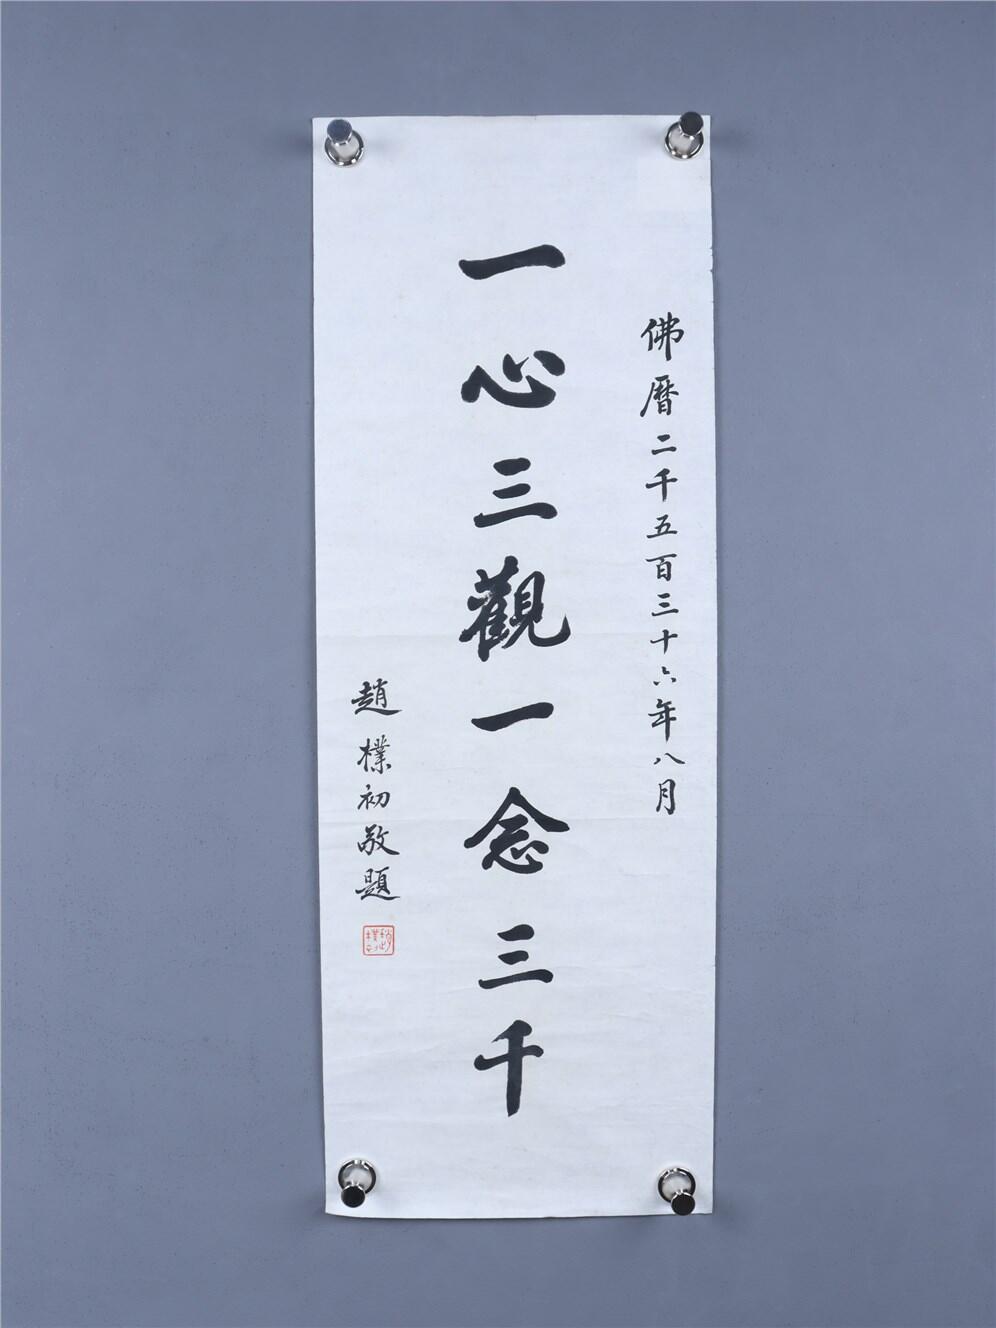 佛曆二千五百三十六年八月
一心三觀一念三千
趙樸初敬題